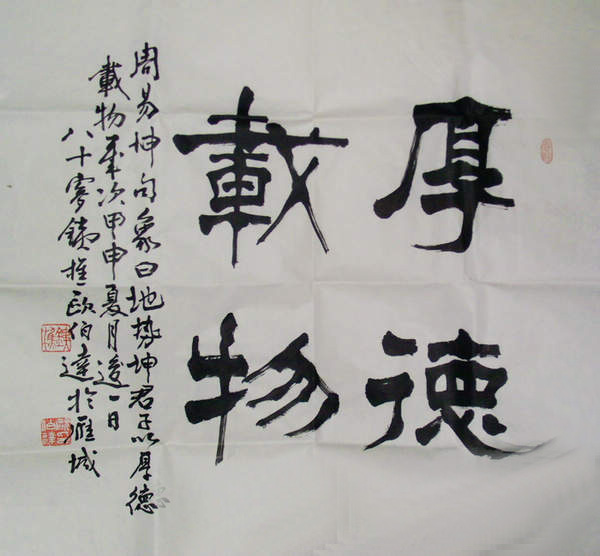 厚德
載物
周易坤句象曰地势坤君子以厚德
載物歲次甲申夏月後一日
八十寥鐵樵歐伯達於雁城